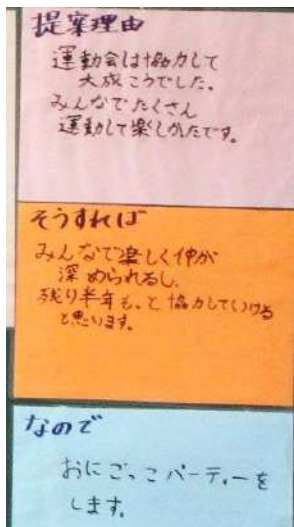 提案理由
運動会は協力して
大成こうでした。
みんなでたくさん
運動して楽しかたです。
そうすれば
みんなで楽しく仲が
深められるし、
残り半年も、と協力していける
と思います。
なので
おにごっこパーティーを
します。